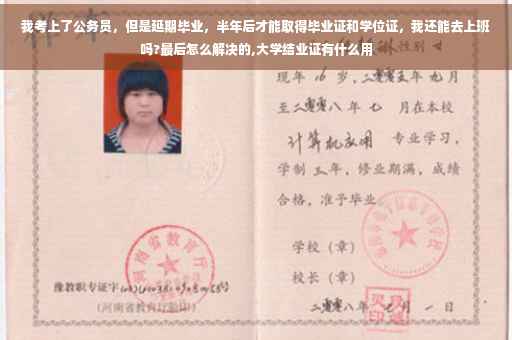 我考上了公务员，但是延期毕业，半年后才能取得毕业证和学位证，我还能去上班
吗?最后怎么解决的,大学结业证有什么用
性别 女
现年 16 岁，二零零五年 九 月
至二零零八年 七 月在本校
计算机应用 专业学习，
学制 三 年，修业期满，成绩
合格，准予毕业
学校（章）
校长（章）
河南省教育厅
豫教职专证字
（河南省教育厅验印）
二零零八年 七 月 一 日